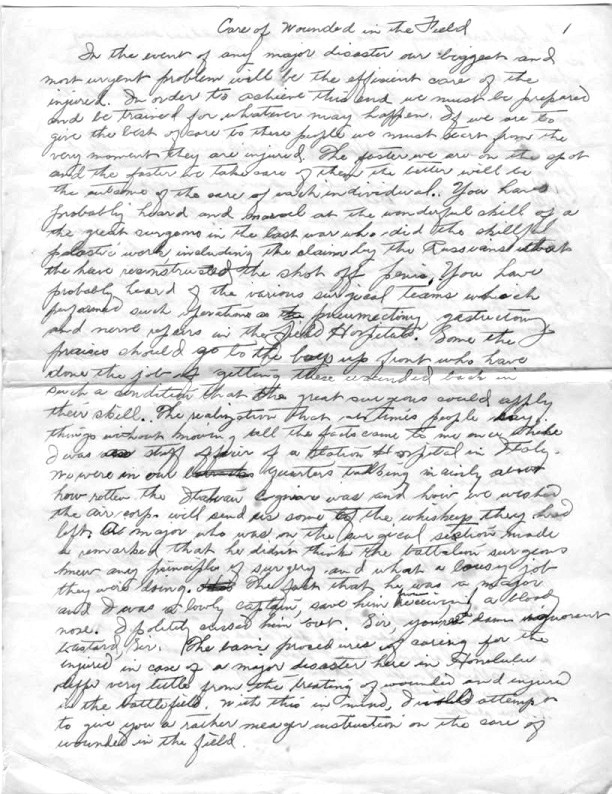 Care of Wounded in the Field 1
In the event of any major disaster our biggest and
most urgent problem will be the efficient care of the
injured. In order to achieve this end we must be prepared
and be trained for whatever may happen. If we are to
give the best of care to these people we must start from the
very moment they are injured. The faster we are on the spot
and the faster we take care of them the better will be
the outcome of the care of each individual. You have
probably heard and marvel at the wonderful skill of a
the great surgeons in the last war who did the skillful
plastic work including the claim by the Russians that
the have reconstructed the shot off penis. You have
probably heard of the various surgical teams which
performed such operations as pneumectomy gastrectomy
and nerve repairs in the Field Hospitals. Some the
praises should go to the boys up front who have
done the job of getting these wounded back in
such a condition that the great surgeons could apply
their skill. The realization that sometimes people say
things without knowing all the facts came to me once while
I was staff officer of a Station Hospital in Italy.
We were in our quarters talking mainly about
how rotten the Italian Cognac was and how we wished
the air corp will send us some of the whiskey they had
left. A major who was on the surgical section made
a remarked that he didn't think the battalion surgeons
knew any principles of surgery and what a lousy job
they were doing. The fact that he was a major
and I was a lowly captain, save him receiving a bloody
nose. I politely cussed him out. Sir, you're damn ignorant
bastard, Sir. The basic procedures of caring for the
injured in case of a major disaster here in Honolulu
differ very little from the treating of wounded and injured
in the battlefield. With this in mind, I attempt
to give you a rather meager instruction on the care of
wounded in the field.